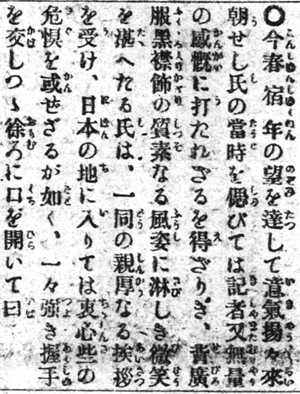 ○今春宿年の望を達して意氣揚々來
朝せし氏の當時を偲びては記者又無量
の感慨に打たれざるを得ざりき、背廣
服黒襟飾の質素なる風姿に淋しき微笑
を湛へたる氏は、一同の親厚なる挨拶
を受け、日本の地に入りては衷心些の
危惧を或せざるが如く、一々强き握手
を交しつゝ徐ろに口を開いて曰